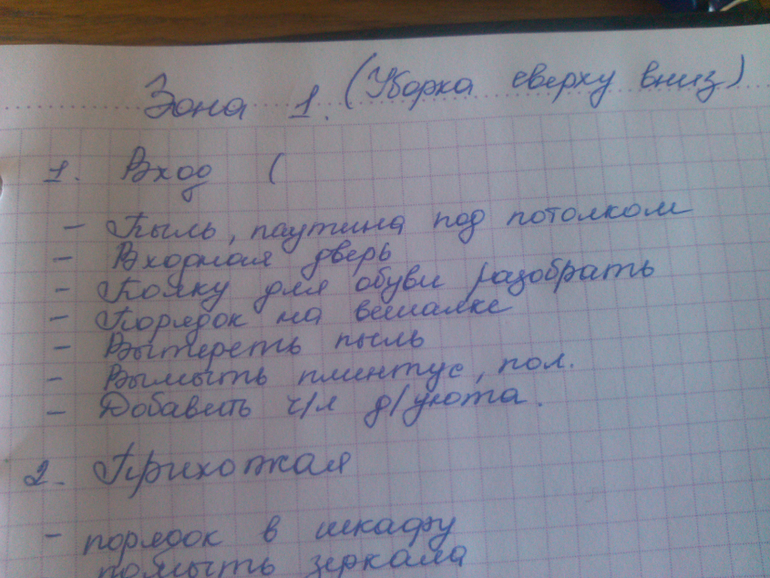 Зона 1. (Уборка сверху вниз)
1. Вход (
- Пыль, паутина под потолком
- Входная дверь
- Полку для обуви разобрать
- Порядок на вешалке
- Вытереть пыль
- Вымыть плинтус, пол.
- Добавить ч/л д/уюта.
2. Прихожая
- порядок в шкафу
помыть зеркала